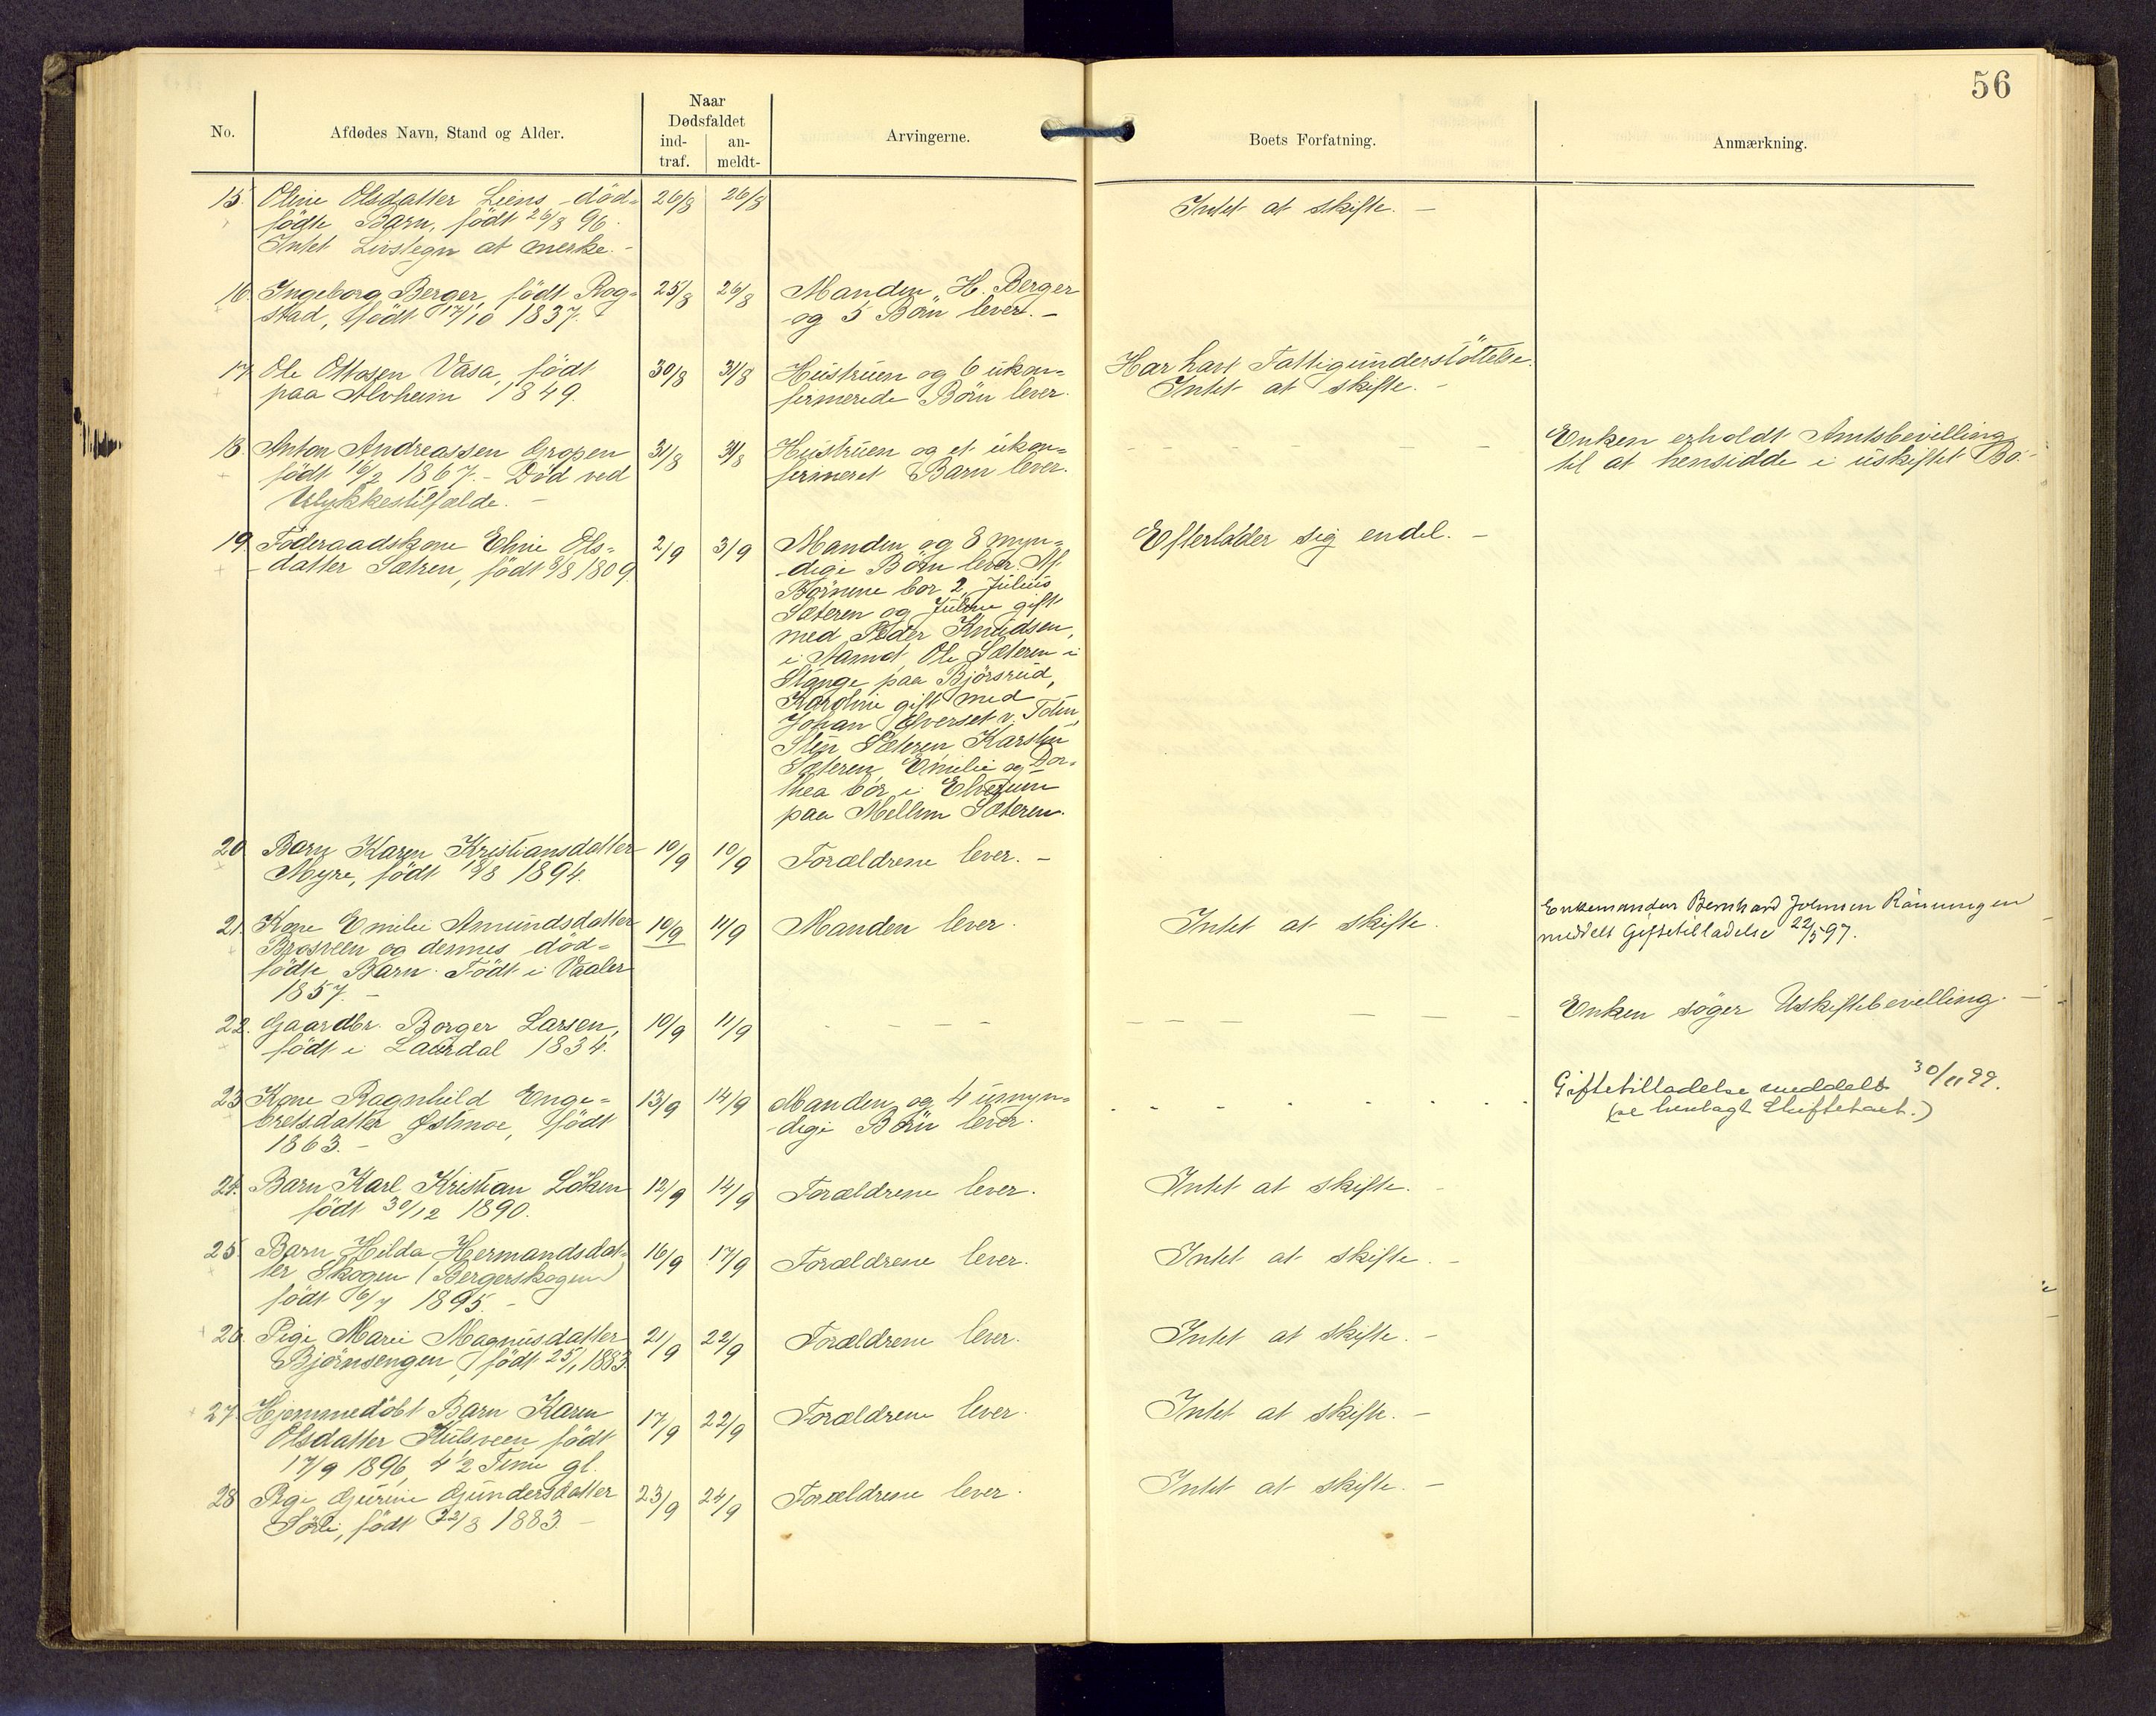 56
No.
Afdødes Navn, Stand og Alder.
Naar
Dødsfaldet
ind-
traf.
an-
meldt-
Arvingerne.
Boets Forfatning.
Anmærkning.
15. Oline Olsdatter Liens död= 26/8 26/8 Intet at skifte. -
födte Barn, födt 26/8 96.
Intet Livstegn at merke. -
16. Ingeborg Berger, födt Rog= 25/8 26/8 Manden H. Berger
stad, födt 17/10 1837. og 5 Börn lever. -
17. Ole Ottosen Vasa, födt 30/8 31/8 Hustruen og 6 ukon= Har havt Fattigunderstöttelse.
paa Alvheim 1849. firmerede Börn lever. Intet at skifte. -
18. Anton Andreassen Gropen 31/8 31/8 Hustruen og et ukon= Enken erholdt Amtsbevilling
födt 16/2 1867. - Död ved firmeret Barn lever. til at hensidde i uskiftet Bo. -
Ulykkestilfælde. -
19. Föderaadskone Eline Ols= 2/9 3/9 Manden og 8 myn= Efterlader sig endel. -
datter Sætren, födt 8/8 1809. dige Börn lever. Af
Börnene bor 2, Julius
Sæteren og Juline gift
med Peder Knudsen,
i Aamot, Ole Sæteren i
Stange paa Björsrud,
Karoline gift med
Johan Elverset v. Toten,
Sten Sæteren, Karsten
Sæteren, Emilie og Dor=
thea bor i Elverum
paa Mellem Sæteren.
20. Barn Karen Kristiansdatter 10/9 10/9 Forældrene lever. -
Myre, födt 18/8 1894.
21. Kone Emilie Amundsdatter 10/9 11/9 Manden lever. Intet at skifte. Enkemanden Bernhard Johnsen Rönningen
Brosveen og dennes död= meddelt Giftetilladelse 22/5 97.
födte Barn. Födt i Vaaler
1857. -
22. Gaardbr. Borger Larsen, 10/9 11/9 - - - - Enken söger Uskiftebevilling. -
födt i Laurdal 1834.
23. Kone Ragnhild Enge= 13/9 14/9 Manden og 4 umyn= Giftetilladelse meddelt 30/11 99.
bretsdatter Østmoe, födt dige Börn lever. (se henlagt Skiftetaet.)
1863. -
24. Barn Karl Kristian Löken 12/9 14/9 Forældrene lever. Intet at skifte. -
födt 30/12 1890.
25. Barn Hilda Hermandsdat= 16/9 17/9 Forældrene lever. Intet at skifte. -
ter Skogen (Bergerskogen)
födt 6/7 1895. -
26. Pige Marie Magnusdatter 21/9 22/9 Forældrene lever. Intet at skifte. -
Björnsengen, födt 25/1 1883.
27. Hjemmedöbt Barn Karen 17/9 22/9 Forældrene lever. Intet at skifte. -
Olsdatter Kulsveen födt
17/9 1896, 4 1/2 Time gl.
28. Pige Gurine Gundersdatter 23/9 24/9 Forældrene lever. Intet at skifte. -
Sörli, födt 22/8 1883. -